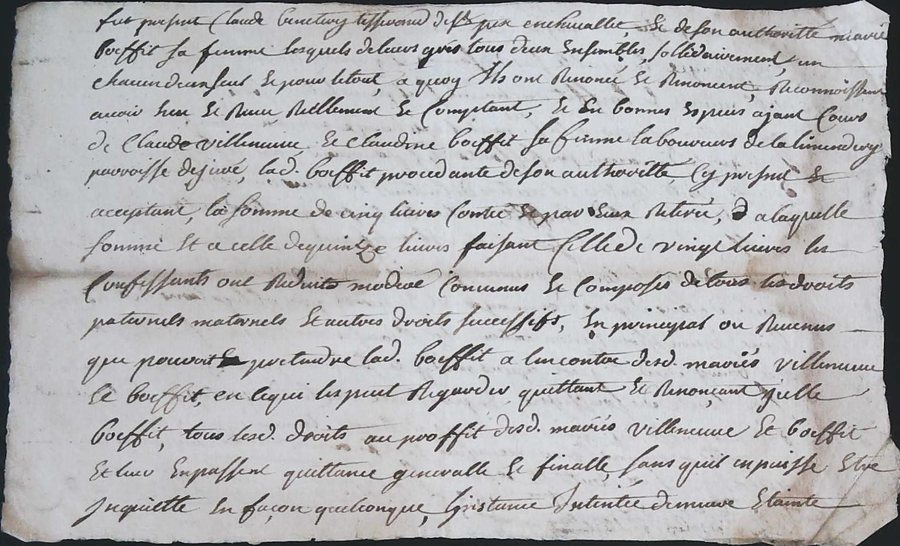 fut present Claude tisserand de st jean enchevallet, & de son authoritté marie
boeffit sa femme lesquels de leurs gres tous deux Ensembles, sollidairement, un
chacun deux seul & pour le tout, a quoy Ils ont Renoncé & Renoncent, Reconnoissent
avoir heu & Receu Réellement & Comptant, & En bonnes Especes ajant Cours
de Claude villeneuve & claudine boeffit sa femme laboureurs de
parroisse de jivé, lad. boeffit procedante de son authoritté Cy present &
acceptant, la somme de cinq livres Contée & par Eux Retirée, a laquelle
somme Et a celle de quinze livres faisant Celle de vingt livres les
Confessants ont Reduits moderé Convenus & Composés de tous les droits
paternels maternels Et autres droits successifs, En principal ou Revenus
que pouvoit pretendre lad. boeffit a lencontre desd. mariés villeneuve
& boeffit, en ce qui les peut Regarder quittant & Renonçant jcelle
boeffit, tous lesd. droits au proffit desd. mariés villeneuve & boeffit
Et leur En passent quittance generalle & finalle, sans quil en puisse Etre
Inquiette En façon quelconque, Linstance Intentée demeure Etainte